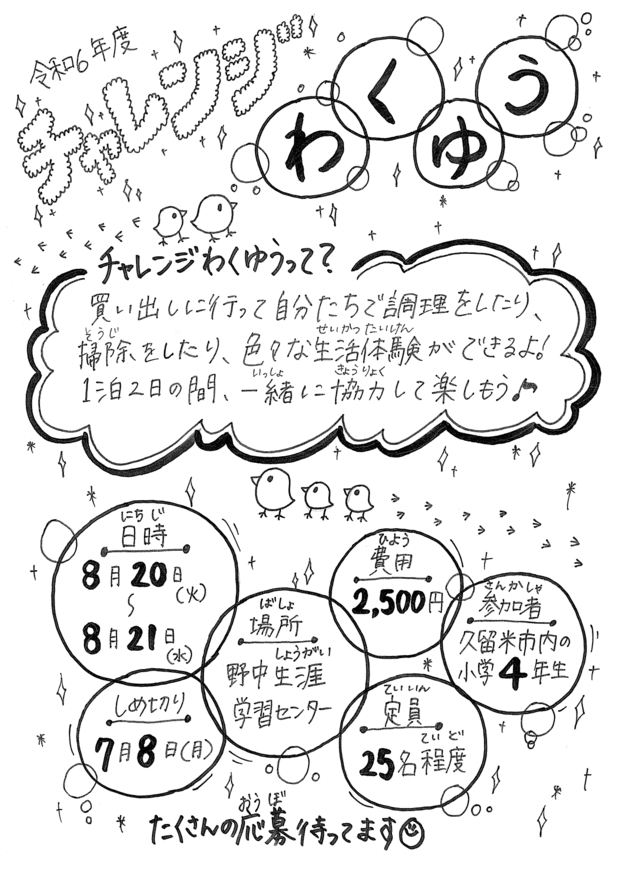 令和6年度
チャレンジ
わくゆう
チャレンジわくゆうって？
買い出しに行って自分たちで調理をしたり、
そうじ せいかつたいけん
掃除をしたり、色々な生活体験ができるよ！
いっしょ きょうりょく
1泊2日の間、一緒に協力して楽しもう♪
にちじ
日時
8月20日(火)
〜
8月21日(水)
ばしょ
場所
しょうがい
野中生涯
学習センター
ひよう
費用
2,500円
さんかしゃ
参加者
久留米市内の
小学4年生
しめ切り
7月8日(月)
ていいん
定員
ていど
25名程度
おうぼ
たくさんの応募待ってます☺